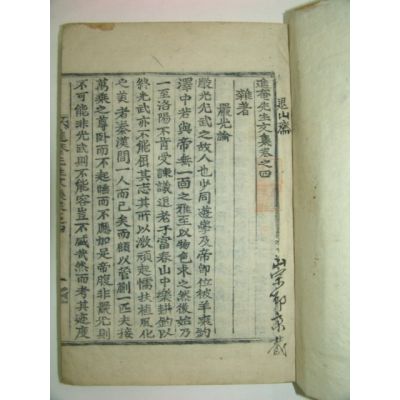 退山齋
進菴先生文集卷之四
雜著
嚴光論
嚴光光武之故人也少同遊學及帝卽位披羊裘釣
澤中若與帝無一面之雅至以物色求之然後始乃
一至洛陽不肯受諫議退老于富春山中樂耕釣以
終光武亦不能屈其志其所以激頑起懦扶植風化
之美者秦漢間一人而已矣而顧以管創一匹夫接
萬乘之尊臥而不起睡而不應如是帝腹非嚴光則
不可能非光武則不能容豈不誠哉然而考其迹度